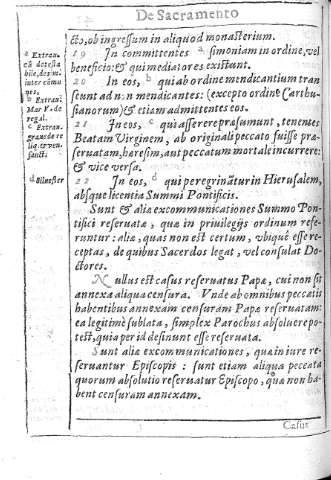 De Sacramento
&to, ob ingressum in aliquod monasterium.
19 In committentes a simoniam in ordine, vel
beneficio: & qui mediatores existunt.
20 In eos, b qui ab ordine mendicantium tran
seunt ad n:n mendicantes: (excepto ordine Carthu-
sianorum) & etiam admittentes eos.
21 In eos, c qui asserere præsumunt, tenentes
Beatam Virginem, ab originali peccato fuisse præ-
seruatam, hæresim, aut peccatum mortale incurrere:
& vice versa.
22 In eos, d qui peregrinātur in Hierusalem,
absque licentia Summi Pontificis.
Sunt & aliæ excommunicationes Summo Pon-
tifici reseruatæ, quæ in priuilegijs ordinum refe-
runtur: aliæ, quas non est certum, vbiquē esse re-
ceptas, de quibus Sacerdos legat, vel consulat Do-
ctores.
Nullus est casus reseruatus Papæ, cui non sit
annexa aliqua censura. Vnde ab omnibus peccatis
habentibus annexam censuram Papæ reseruatam:
ea legitimè sublata, simplex Parochus absoluere po-
test, quia per id desinunt esse reseruata.
Sunt aliæ excommunicationes, quæ in iure re-
seruantur Episcopis: sunt etiam aliqua peccata
quorum absolutio reseruatur Episcopo, quæ non ha-
bent censuram annexam.
Casus
a Extrau.
cū detesta
bile, de simo.
inter cōmu
nes.
b Extrau.
Mar V. de
regul.
c Extrau.
graue de re
liq. & ven.
sanct.
d Siluester